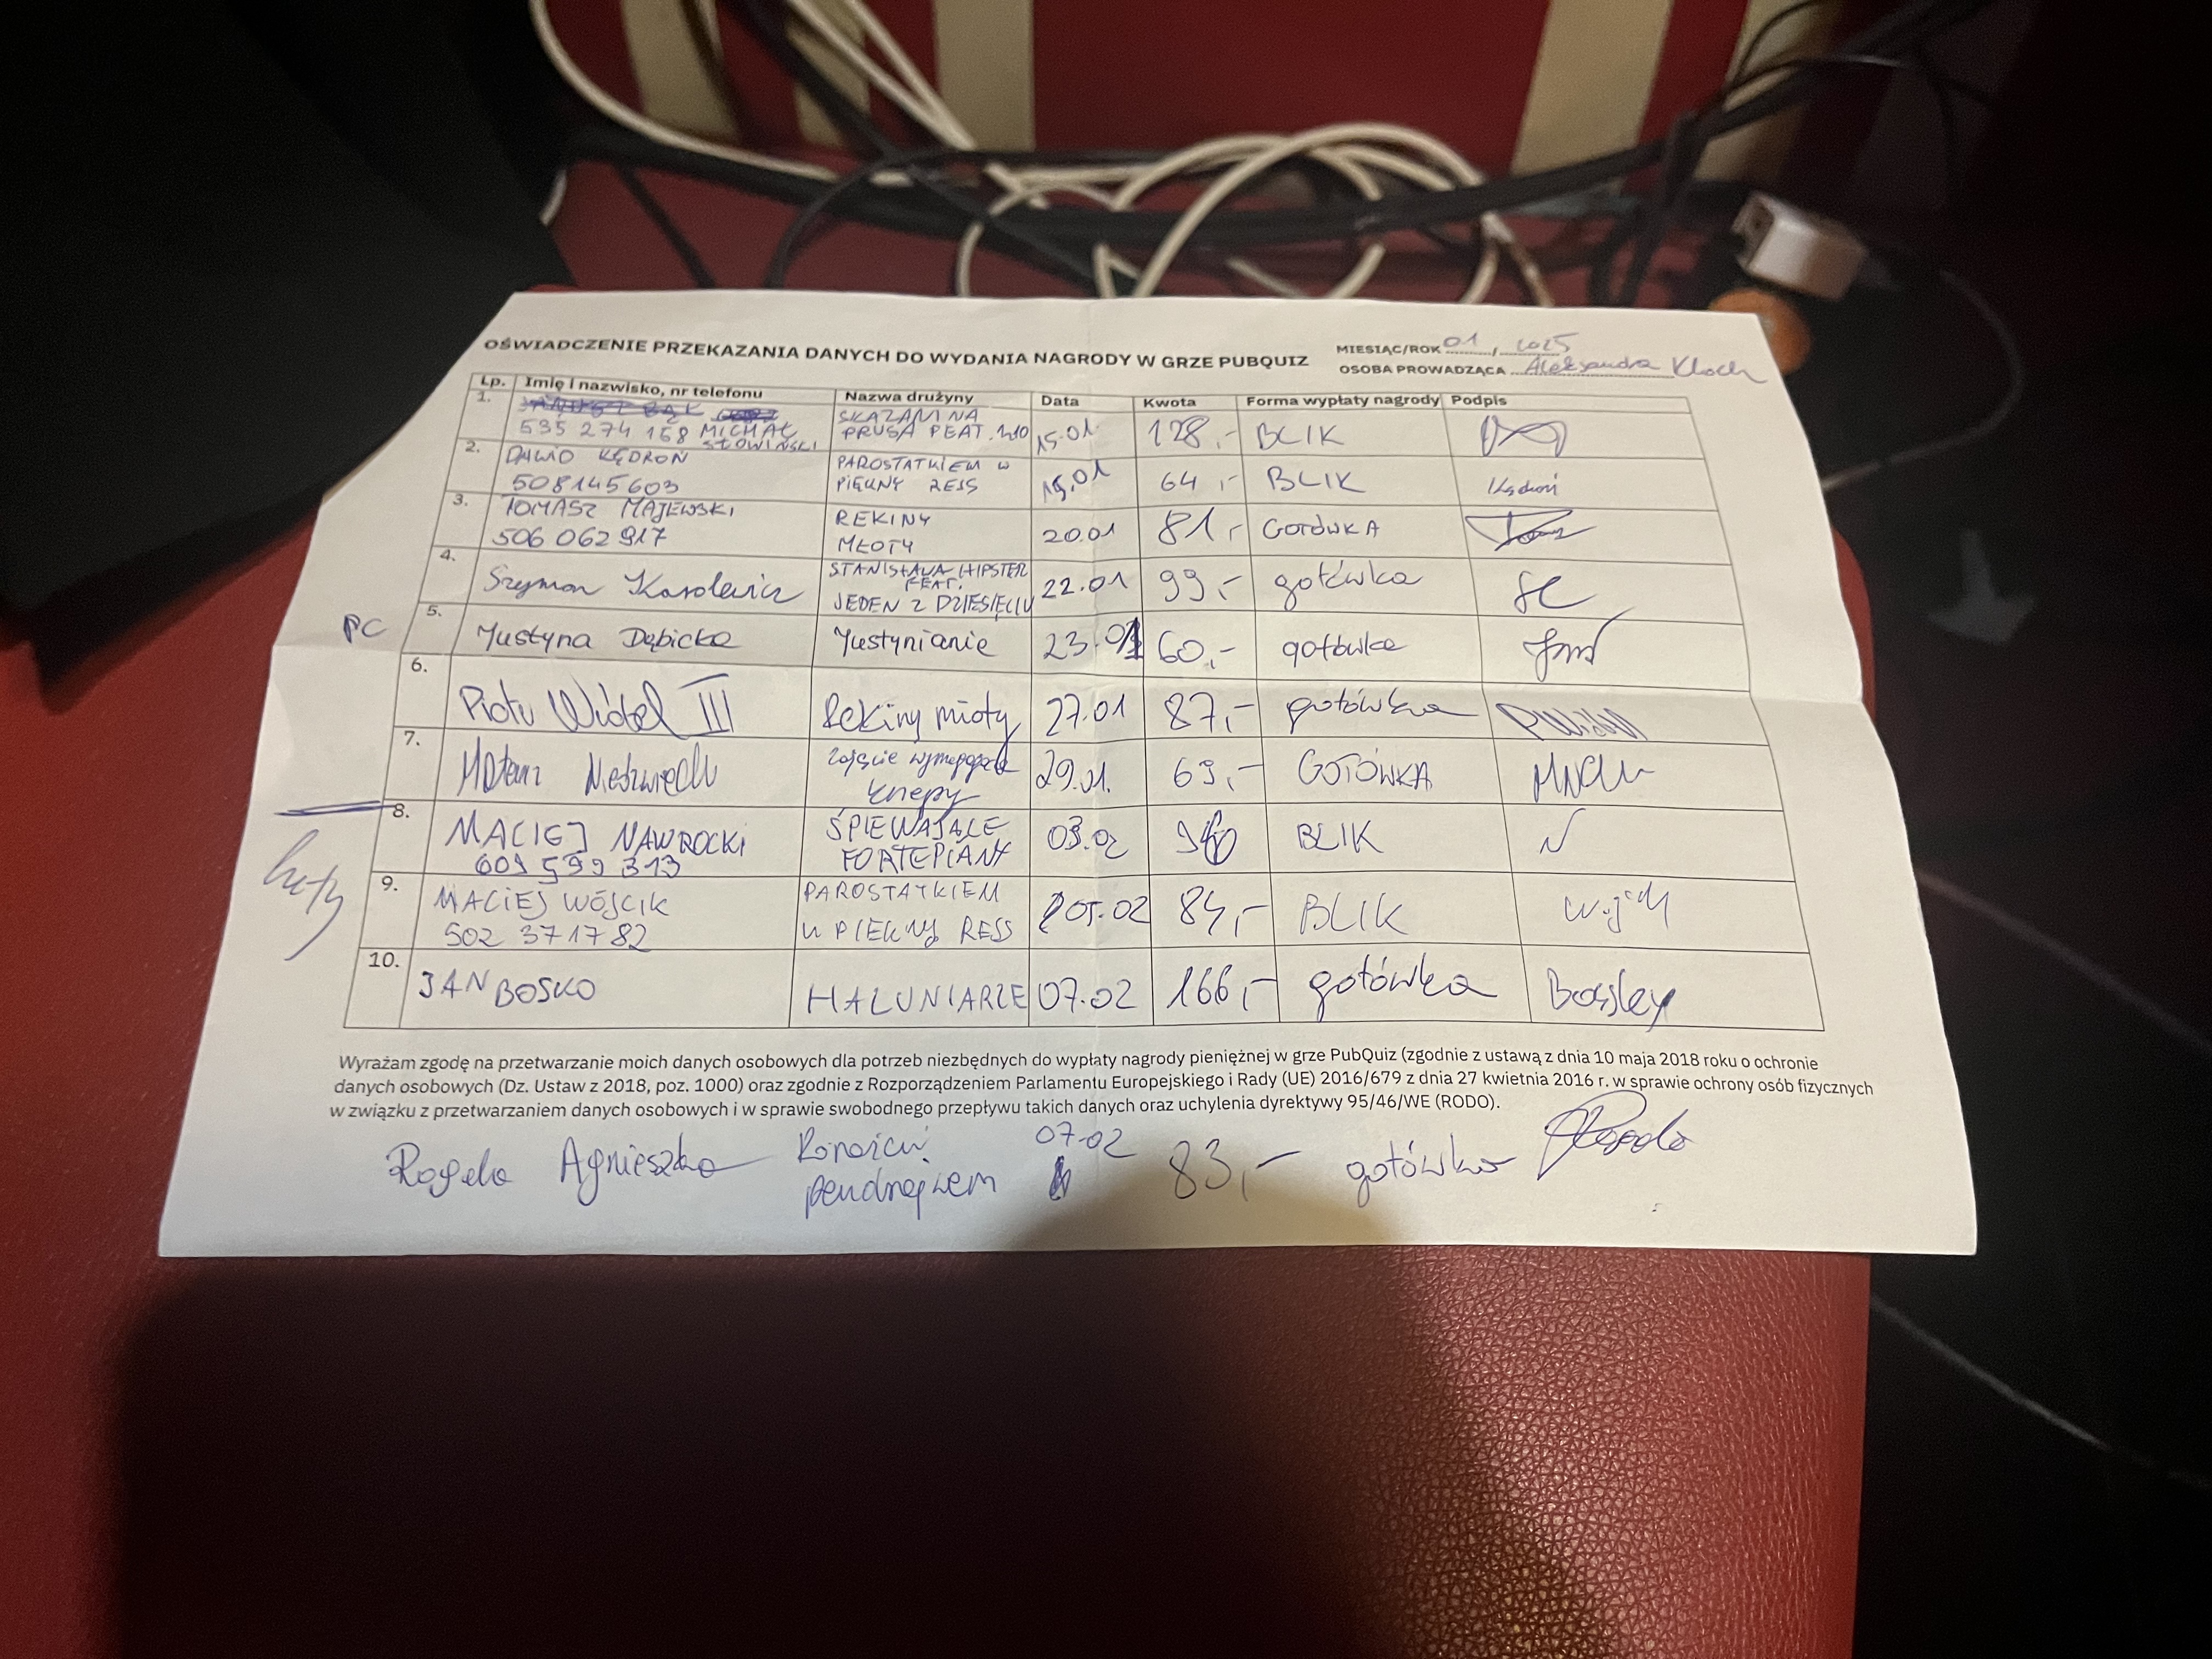 OŚWIADCZENIE PRZEKAZANIA DANYCH DO WYDANIA NAGRODY W GRZE PUBQUIZ
MIESIĄC/ROK 01 / 2025
OSOBA PROWADZĄCA Aleksandra Kloch
Lp. Imię i nazwisko, nr telefonu Nazwa drużyny Data Kwota Forma wypłaty nagrody Podpis
1. 535 274 158 MICHAŁ SŁOWIŃSKI SKAZANI NA PRUSA FEAT. 15.01 128,- BLIK
2. DAWID KĘDROŃ 508145603 PAROSTATKIEM W PIĘKNY REJS 15.01 64,- BLIK Kędroń
3. TOMASZ MAJEWSKI 506 062 917 REKINY MŁOTY 20.01 81,- GOTÓWKA
4. Szymon Karolewicz STANISŁAWA HIPSTER FEAT. JEDEN Z DZIESIĘCIU 22.01 99,- gotówka
PC
5. Justyna Dębicka Justynianie 23.01 60,- gotówka
6. Piotr III Rekiny młoty 27.01 87,- gotówka
7. zajęcie knepy 29.01. 63,- GOTÓWKA
luty
8. MACIEJ NAWROCKI 609 599 313 ŚPIEWAJĄCE FORTEPIANY 03.02 BLIK
9. MACIEJ WÓJCIK 502 371782 PAROSTATKIEM W PIĘKNY REJS 05.02 84,- BLIK
10. JAN BOSKO HALUNIARZE 07.02 166,- gotówka Bossley
Wyrażam zgodę na przetwarzanie moich danych osobowych dla potrzeb niezbędnych do wypłaty nagrody pieniężnej w grze PubQuiz (zgodnie z ustawą z dnia 10 maja 2018 roku o ochronie
danych osobowych (Dz. Ustaw z 2018, poz. 1000) oraz zgodnie z Rozporządzeniem Parlamentu Europejskiego i Rady (UE) 2016/679 z dnia 27 kwietnia 2016 r. w sprawie ochrony osób fizycznych
w związku z przetwarzaniem danych osobowych i w sprawie swobodnego przepływu takich danych oraz uchylenia dyrektywy 95/46/WE (RODO).
Rogala Agnieszka 07.02 83,- gotówka